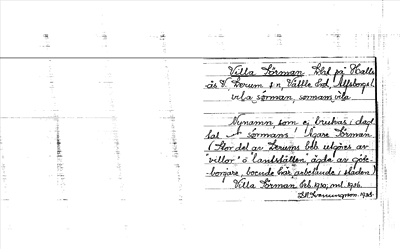 Villa Sörman, Ebd på Halle
ås V. Lerum s n, Vättle hd, Älfsborgs l
vɩla sørman, sørmans vɩla
Nynamn som ej brukas i dagl
tal sörmans! Ägare Sörman
(Stor del av Lerums beb. utgöres av
"villor" o lantställen, ägda av göte-
borgare, boende här, arbetande i staden)
Villa Sörman beb. 1930; ml. 1936.